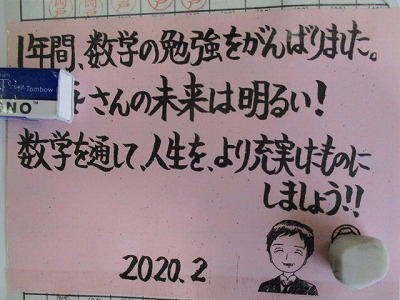 1年間、数学の勉強をがんばりました。
さんの未来は明るい!
数学を通して、人生を、より充実したものに
しましょう!!
2020.2
Tombow
ONO™